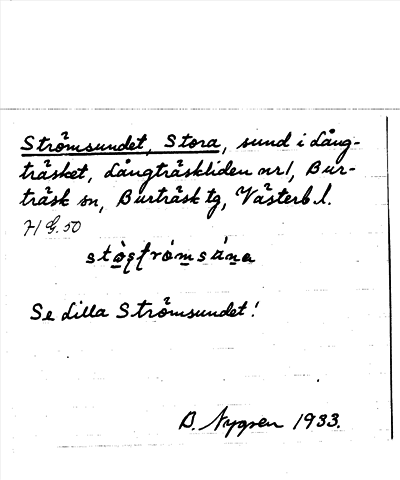 Strömsundet, Stora, sund i Lång-
träsket, Långträskliden nr 1, Bur-
träsk sn, Burträsk tg, Västerb. l.
71 G. 50
Se Lilla Strömsundet!
B. Nygren 1933.